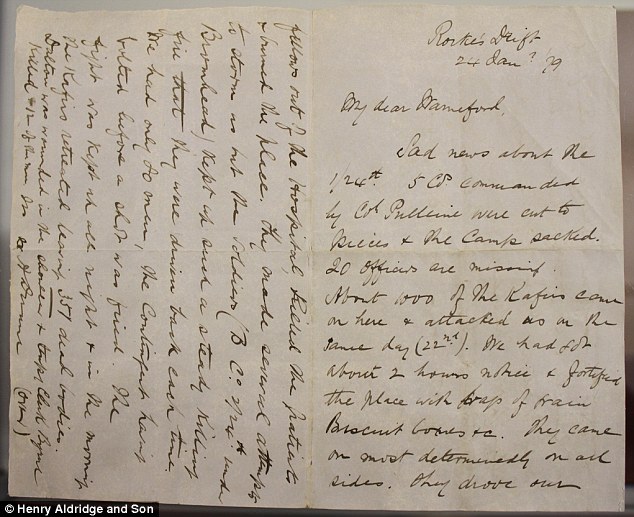 Rorke's Drift
24 Jany 79
My dear Warneford,
Sad news about the
1/24th. 5 Cos commanded
by Col Pulleine were cut to
pieces & the Camp sacked.
20 officers are missing.
About 1000 of the Kafirs came
on here & attacked us on the
same day (22nd). We had got
about 2 hours notice & fortified
the place with bags of grain
Biscuit boxes &c. They came
on most determinedly on all
sides. They drove our
fellows out of the Hospital, killed the patients
& burned the place. They made several attempts
to storm us but the soldiers (B Co. 2/24th under
Bromhead) kept up such a steady killing
fire that they were driven back each time.
We had only 80 men, the Contingent having
bolted before a shot was fired. The
fight was kept up all night & in the morning
the Kafirs retreated leaving 351 dead bodies.
Dalton was wounded in the shoulder & Clerk Byrne
killed & 12 of the men (over)
© Henry Aldridge and Son